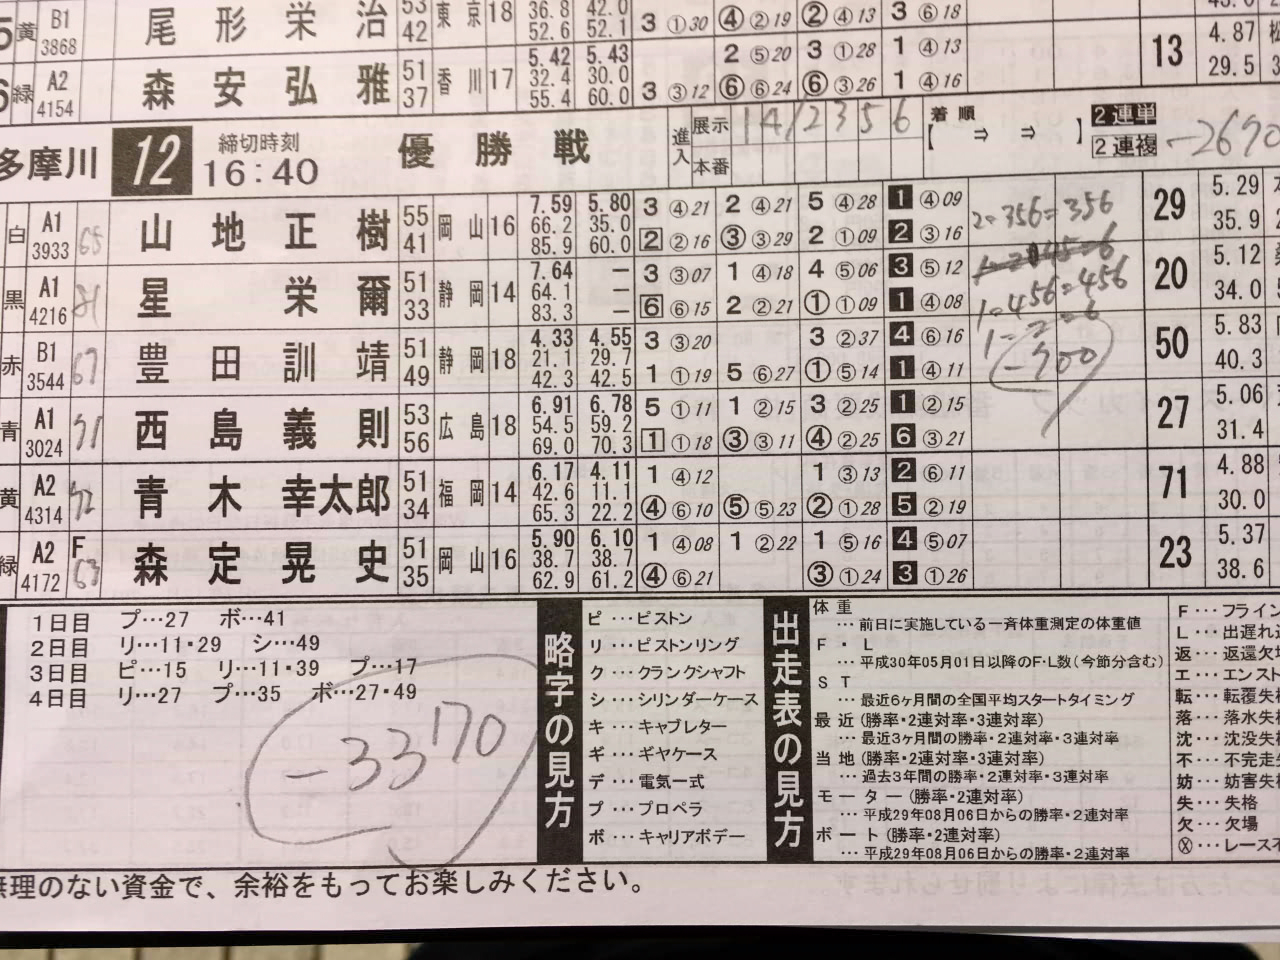 5 黄 B1 3868 尾形栄治 53 42 東京 18 36.8 52.6 42.0 52.1 3 ①30 ④ ②19 ② ④13 3 ⑥18
6 緑 A2 4154 森安弘雅 51 37 香川 17 5.42 32.4 55.4 5.43 30.0 60.0 3 ③12 2 ⑤20 ⑥ ⑥24 3 ①28 ⑥ ③26 1 ④13 1 ④16 13 4.87 29.5
多摩川 12 締切時刻 16:40 優勝戦 進入 展示 14/2356 本番 着順 【 ⇒ ⇒ 】 2連単 2連複 -2690
白 A1 3933 65 山地正樹 55 41 岡山 16 7.59 66.2 85.9 5.80 35.0 60.0 3 ④21 2 ④21 5 ④28 1 ④09 2 ②16 ③ ③29 2 ①09 2 ③16 2=356=356 29 5.29 35.9
黒 A1 4216 星栄爾 51 33 静岡 14 7.64 64.1 83.3 — — — 3 ③07 1 ④18 4 ⑤06 3 ⑤12 6 ⑥15 2 ②21 ① ①09 1 ④08 1=456=456 20 5.12 34.0
赤 B1 3544 67 豊田訓靖 51 49 静岡 18 4.33 21.1 42.3 4.55 29.7 42.5 3 ③20 3 ②37 4 ⑥16 1 ①19 5 ⑥27 ① ⑤14 1 ④11 1-2=6 -700 50 5.83 40.3
青 A1 3024 71 西島義則 53 56 広島 18 6.91 54.5 69.0 6.78 59.2 70.3 5 ①11 1 ②15 3 ②25 1 ②15 1 ①18 ③ ③11 ④ ②25 6 ③21 27 5.06 31.4
黄 A2 4314 72 青木幸太郎 51 34 福岡 14 6.17 42.6 65.3 4.11 11.1 22.2 1 ④12 1 ③13 2 ⑥11 ④ ⑥10 ⑤ ⑤23 ② ①28 5 ②19 71 4.88 30.0
緑 A2 4172 F 63 森定晃史 51 35 岡山 16 5.90 38.7 62.9 6.10 38.7 61.2 1 ④08 1 ②22 1 ⑤16 4 ⑤07 ④ ⑥21 ③ ①24 3 ①26 23 5.37 38.6
1日目 プ…27 ボ…41
2日目 リ…11・29 シ…49
3日目 ピ…15 リ…11・39 プ…17
4日目 リ…27 プ…35 ボ…27・49
-33170
略字の見方
ピ…ピストン
リ…ピストンリング
ク…クランクシャフト
シ…シリンダーケース
キ…キャブレター
ギ…ギヤケース
デ…電気一式
プ…プロペラ
ボ…キャリアボデー
出走表の見方
体重
…前日に実施している一斉体重測定の体重値
F・L
…平成30年05月01日以降のF・L数(今節分含む)
ST
…最近6ヶ月間の全国平均スタートタイミング
最近(勝率・2連対率・3連対率)
…最近3ヶ月間の勝率・2連対率・3連対率
当地(勝率・2連対率・3連対率)
…過去3年間の勝率・2連対率・3連対率
モーター(勝率・2連対率)
…平成29年08月06日からの勝率・2連対率
ボート(勝率・2連対率)
…平成29年08月06日からの勝率・2連対率
F…フライン
L…出遅れ
返…返還欠場
エ…エンスト
転…転覆失格
落…落水失格
沈…沈没失格
不…不完走失
妨…妨害失格
失…失格
欠…欠場
Ⓧ…レース不
無理のない資金で、余裕をもってお楽しみください。